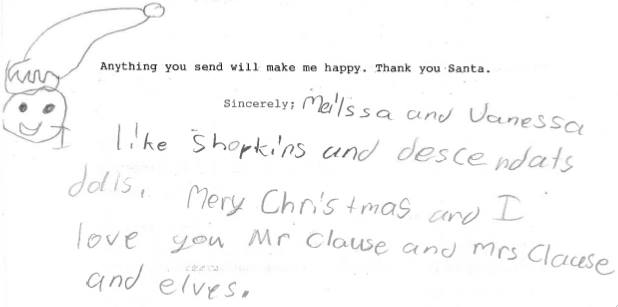 Anything you send will make me happy. Thank you Santa.
Sincerely; Meilssa and Vanessa
I like Shopkins and descendats
dolls. Mery Christmas and I
love you Mr Clause and Mrs Clause
and elves.